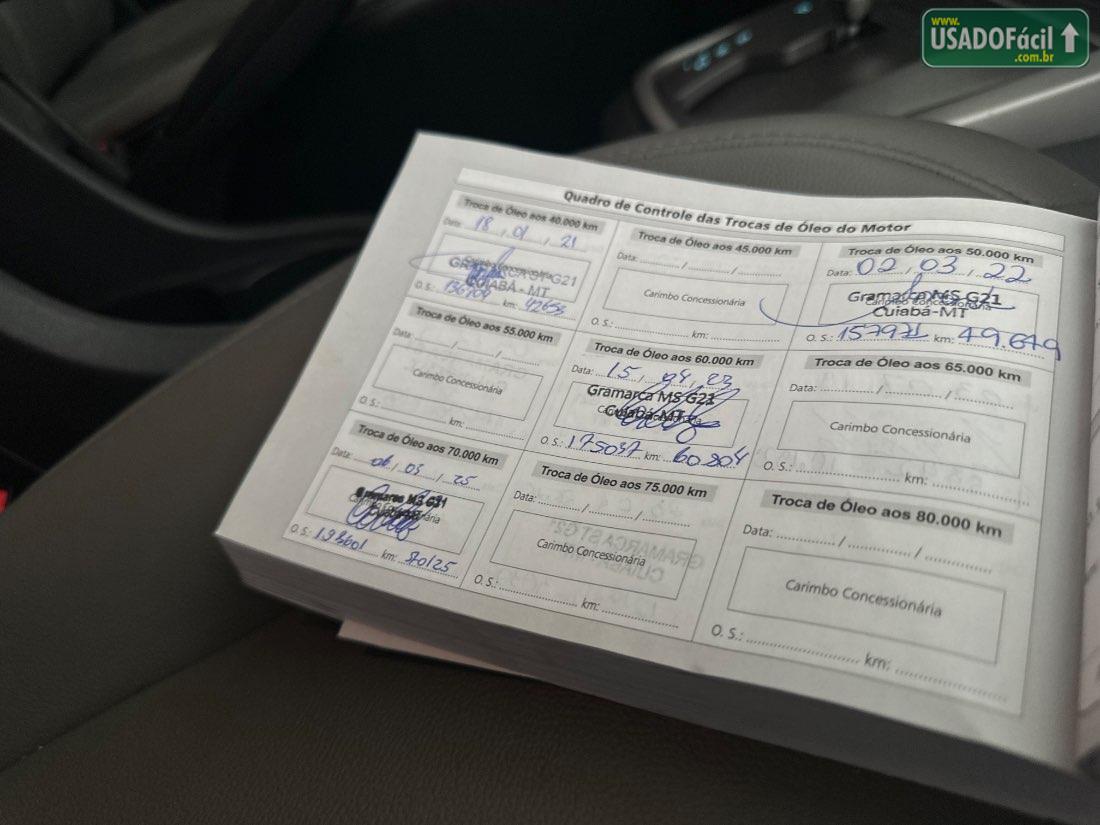 www.
USADOFácil
.com.br
Quadro de Controle das Trocas de Óleo do Motor
Troca de Óleo aos 40.000 km
Data: 18 / 01 / 21
CUIABÁ - MT
O. S.: km: 42653
Troca de Óleo aos 45.000 km
Data: / /
Carimbo Concessionária
O. S.: km:
Troca de Óleo aos 50.000 km
Data: 02 / 03 / 22
Gramarca MS G21
Carimbo Concessionária
Cuiabá-MT
O. S.: 157921 km: 49.679
Troca de Óleo aos 55.000 km
Data: / /
Carimbo Concessionária
O. S.: km:
Troca de Óleo aos 60.000 km
Data: 15 / 04 / 23
Gramarca MS G21
Cuiabá-MT
O. S.: 175037 km: 60.804
Troca de Óleo aos 65.000 km
Data: / /
Carimbo Concessionária
O. S.: km:
Troca de Óleo aos 70.000 km
Data: 06 / 03 / 25
O. S.: 193601 km: 70125
Troca de Óleo aos 75.000 km
Data: / /
Carimbo Concessionária
O. S.: km:
Troca de Óleo aos 80.000 km
Data: / /
Carimbo Concessionária
O. S.: km: